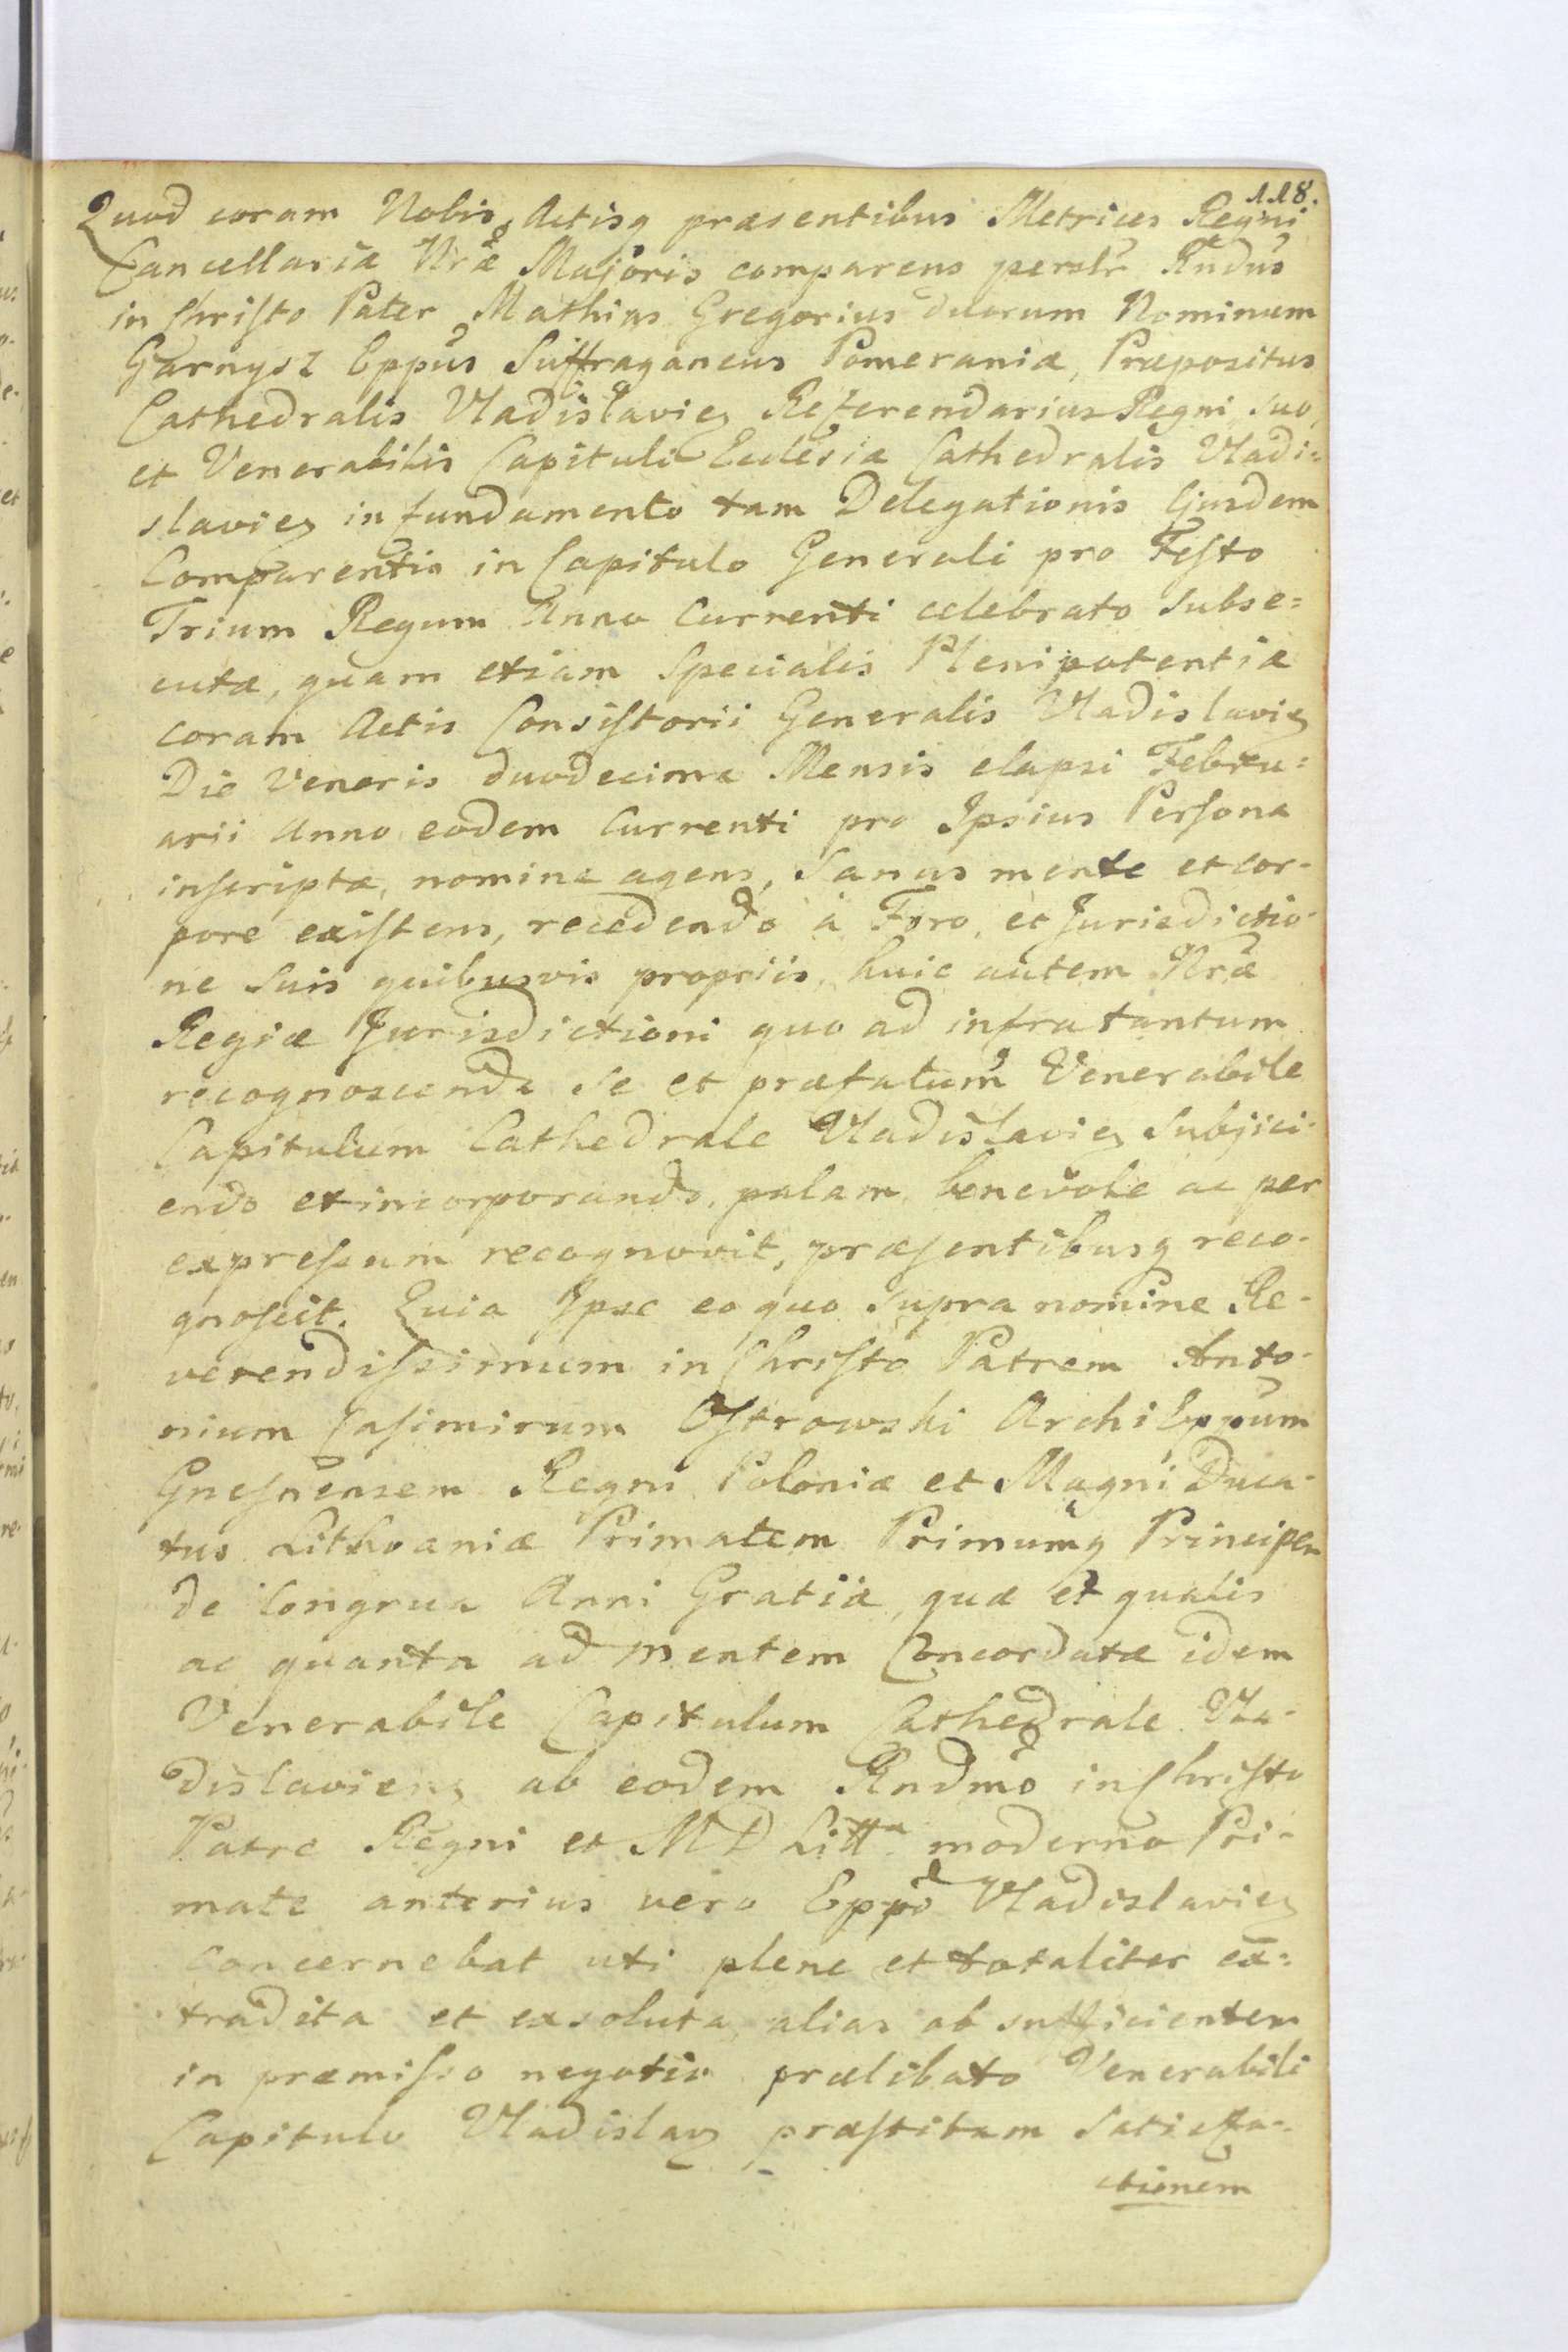 118.
Quod coram Nobis, Actisq præsentibus Metrices Regni
Cancellariæ Nræ Majoris comparens perilr Rndus
in Christo Pater Mathias Gregorius duorum Nominum
Garnysz Eppus Suffraganeus Pomeraniæ, Præpositus
Cathedralis Vladislavieñ Referendarius Regni suo,
et Venerabilis Capituli Ecclesiæ Cathedralis Vladi=
slavieñ in fundamento tam Delegationis Ejusdem
Comparentis in Capitulo Generali pro Festo
Trium Regum Anno Currenti celebrato subse=
cutæ, quam etiam Specialis Plenipotentiæ
coram Actis Consistorii Generalis Vladislavieñ
Die Veneris duodecima Mensis elapsi Febru=
arii Anno eodem Currenti pro Ipsius Persona
inscriptæ, nomine agens, Sanus mente et cor-
pore existens, recedendo à Foro, et Jurisdictio-
ne Suis quibusvis propriis, huic autem Nræ
Regiæ Jurisdictioni quo ad infra tantum
recognoscenda se et præfatum Venerabile
Capitulum Cathedrale Vladislavieñ Subjici-
endo et incorporando, palam, benevole ac per
expressum recognovit, præsentibusq reco-
gnoscit. Quia Ipse eo quo supra nomine Re-
verendissimum in Christo Patrem Anto-
nium Casimirum Ostrowski Archi Eppum
Gnesnensem Regni Poloniæ et Magni Duca-
tus Lithvaniæ Primatem Primumq Principem
de Congrua Anni Gratiæ, quæ et qualis
ac quanta ad mentem Concordatæ idem
Venerabile Capitulum Cathedrale Vla-
dislavienñ ab eodem Rndmo in Christo
Patre Regni et M D Litt moderno Pri-
mate anterius vero Eppo Vladislavieñ
concernebat uti plene et totaliter ex=
tradita et exsoluta, alias ob sufficientem
in præmisso negotio prælibato Venerabili
Capitulo Vladislavñ præstitam Satisfa-
ctionem